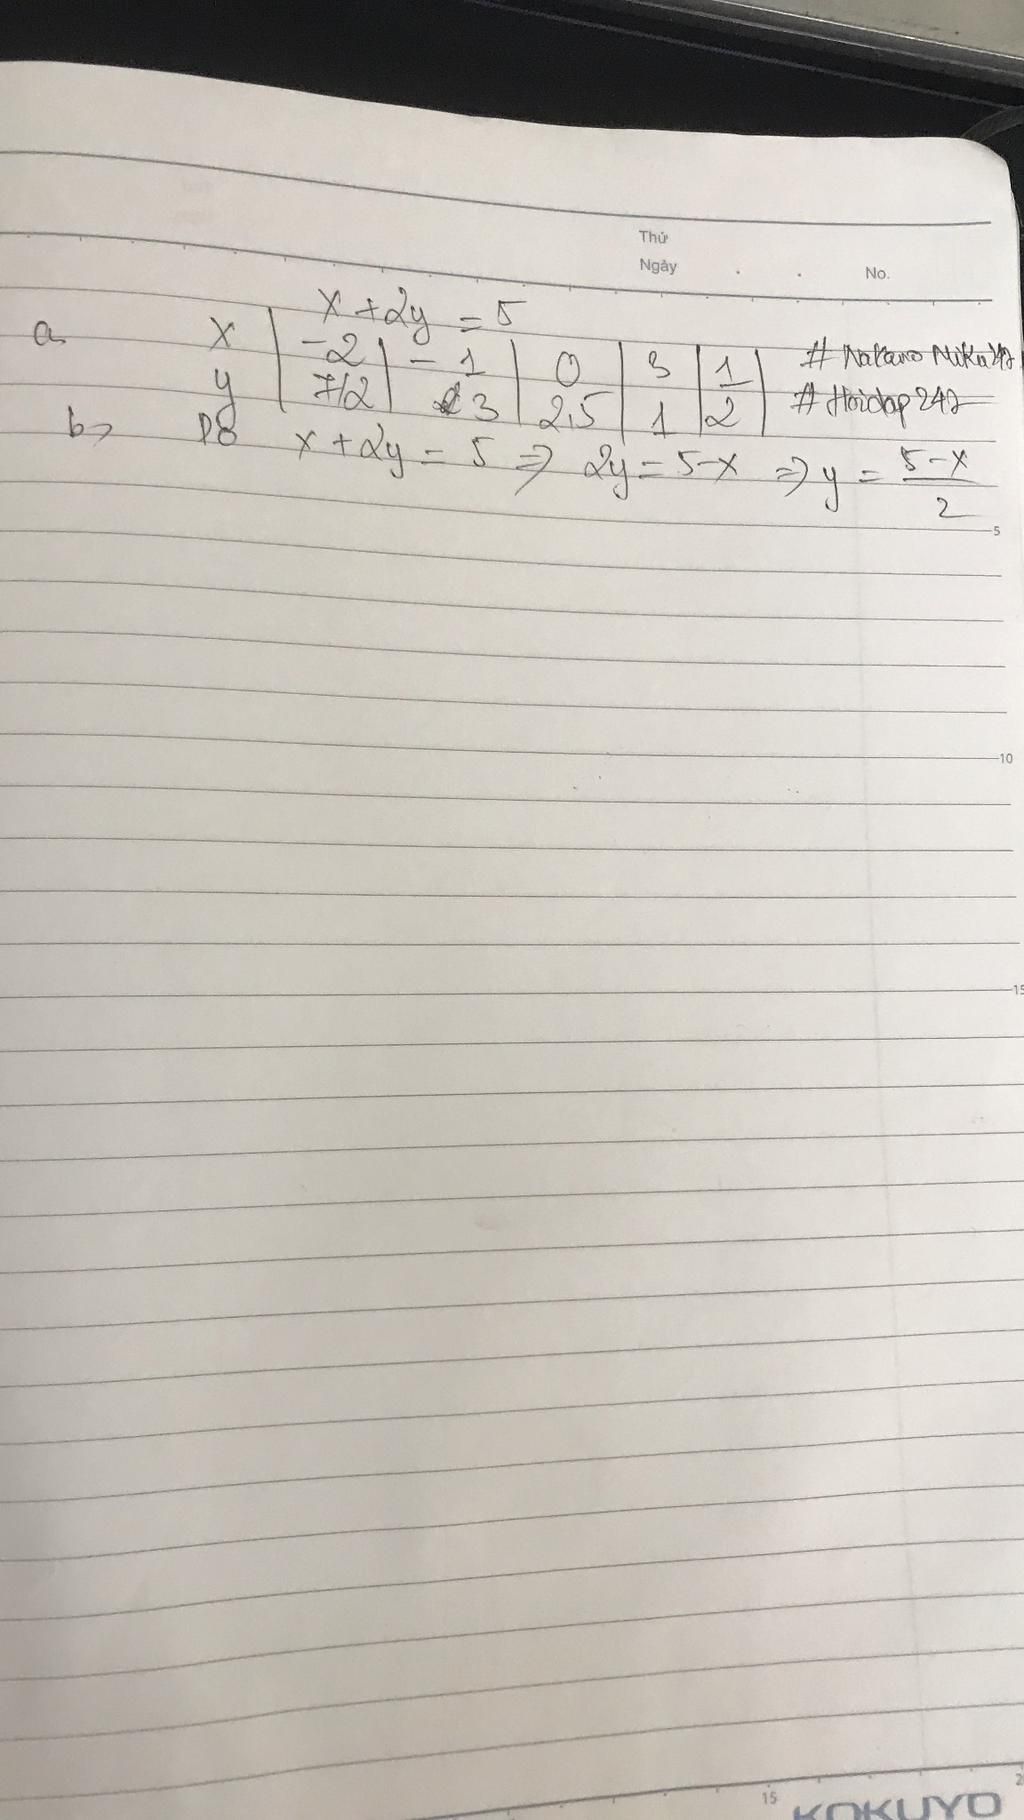 Thứ
Ngày . . No.
x + 2y = 5
a x | -2 | -1 | 0 | 3 | 1 | # Nakano Miku
y | 7/2 | 3 | 2,5 | 1 | 2 | # Hoidap247
b> x + 2y = 5 => 2y = 5-x => y = 5-x / 2
5
10
15
15
KOKUYO